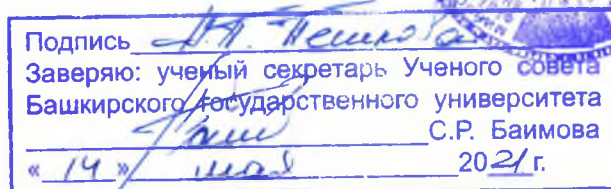 Подпись Н.П. Пешкова
Заверяю: ученый секретарь Ученого совета
Башкирского государственного университета
С.Р. Баимова
« 14 » мая 2021 г.